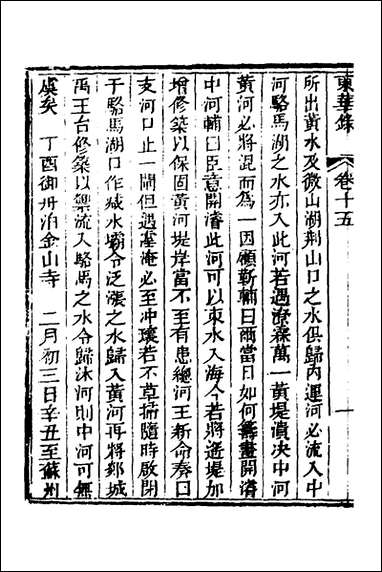 東華錄 卷十五 一
所出黃水及微山湖荆山口之水俱歸內運河必流入中
河駱馬湖之水亦入此河若遇潦霖萬一黃堤潰決中河
黃河必將混而為一因顧靳輔曰爾當日如何籌畫開濬
中河輔曰臣意開濬此河可以束水入海今若將遥堤加
增修築以保固黃河堤岸當不至有患總河王新命奏曰
支河口止一閘但遇淹必至冲壞若不草插隨時啟閉
于駱馬湖口作減水壩令泛漲之水歸入黃河再將郯城
禹王台修築以禦流入駱馬之水令歸沐河則中河可無
虞矣 丁酉御舟泊金山寺 二月初三日辛丑至蘇州